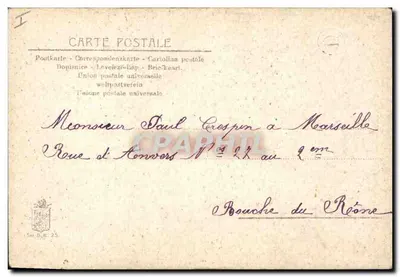 CARTE POSTALE
Postkarte - Correspondenzkarte - Cartolina postale
Dopisnice - Levelező-Lap - Briefkaart
Union postale universelle
weltpostverein
Unione postale universale
Monsieur Paul Crespin à Marseille
Rue d'Anvers N° 27 au 2em
CPAPHIL
Bouche du Rône